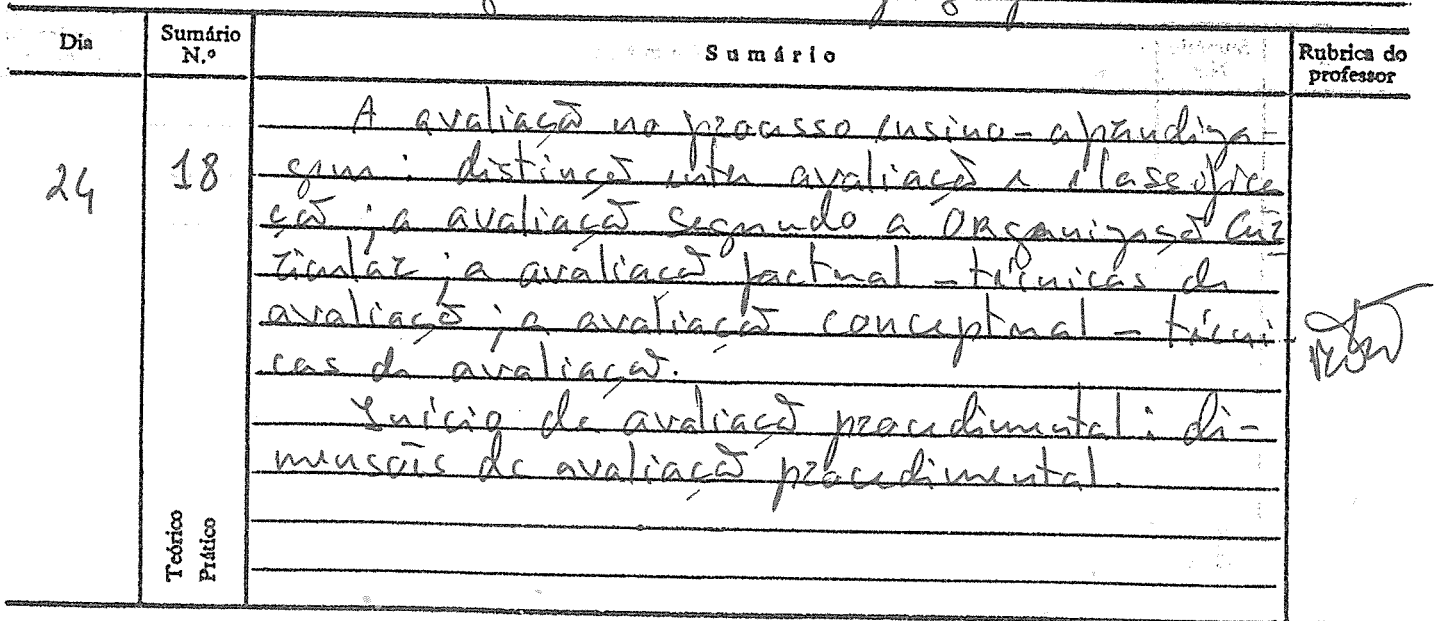 Dia
Sumário N.º
Sumário
Rubrica do professor
24
18
A avaliação no processo ensino-aprendiza-
gem: distinção entre avaliação e classifica
ção; a avaliação segundo a Organização Cur
ricular; a avaliação factual - técnicas de
avaliação; a avaliação conceptual - técni
cas de avaliação.
Início da avaliação procedimental: di-
mensões da avaliação procedimental.
Teórico
Prático